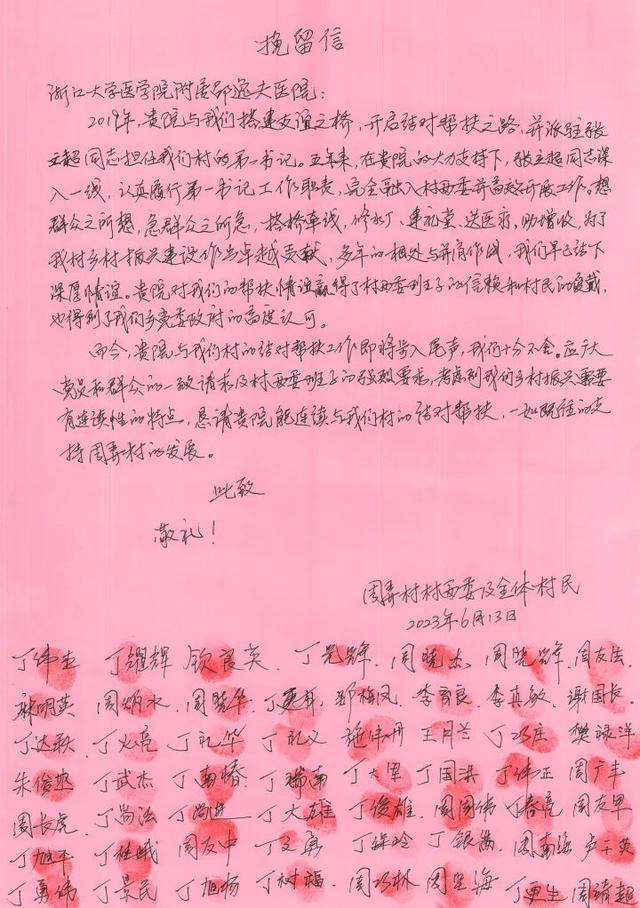 挽留信
浙江大学医学院附属邵逸夫医院:
2019年,贵院与我们搭建友谊之桥,开启结对帮扶之路,并派驻张
立超同志担任我们村的第一书记。五年来,在贵院的大力支持下,张立超同志深
入一线,认真履行第一书记工作职责,完全融入村两委并高效开展工作。想
群众之所想,急群众之所急,搭桥牵线,修水厂、建礼堂、送医疗、助增收,为了
我村乡村振兴建设作出卓越贡献,多年的相处与并肩作战,我们早已结下
深厚情谊。贵院对我们的帮扶情谊赢得了村两委班子的信赖和村民的爱戴,
也得到了我们乡党委政府的高度认可。
而今,贵院与我们村的结对帮扶工作即将步入尾声,我们十分不舍。应广大
党员和群众的一致请求及村两委班子的强烈要求,考虑到我们乡村振兴需要
有连续性的特点,恳请贵院能连续与我们村的结对帮扶,一如既往的支
持周弄村的发展。
此致
敬礼!
周弄村村两委及全体村民
2023年6月13日
丁耀辉 钦良英 丁光辉 周晓杰 周晓辉 周友法
麻明英 周炳水 周晓华 邬梅凤 李育良 李真敏 谢国长
丁火亮 丁礼华 丁礼义 王月兰 樊禄洋
朱俊 丁武杰 丁南椿 丁瑞南 丁大军 丁国洪 丁伟正 周广丰
周长虎 丁尚法 丁尚进 丁大雄 丁俊雄 周国伟 丁春亮 周友军
丁旭平 丁佳娥 周友中 丁文勇 丁银满 周南海
丁勇伟 丁景民 丁旭杨 丁树福 周巧林 丁更生 周靖超